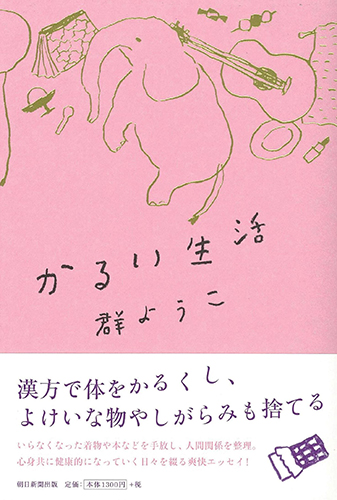 かるい生活
群ようこ
漢方で体をかるくし、
よけいな物やしがらみも捨てる
いらなくなった着物や本などを手放し、人間関係を整理。
心身共に健康的になっていく日々を綴る爽快エッセイ!
朝日新聞出版 定価:本体1300円+税